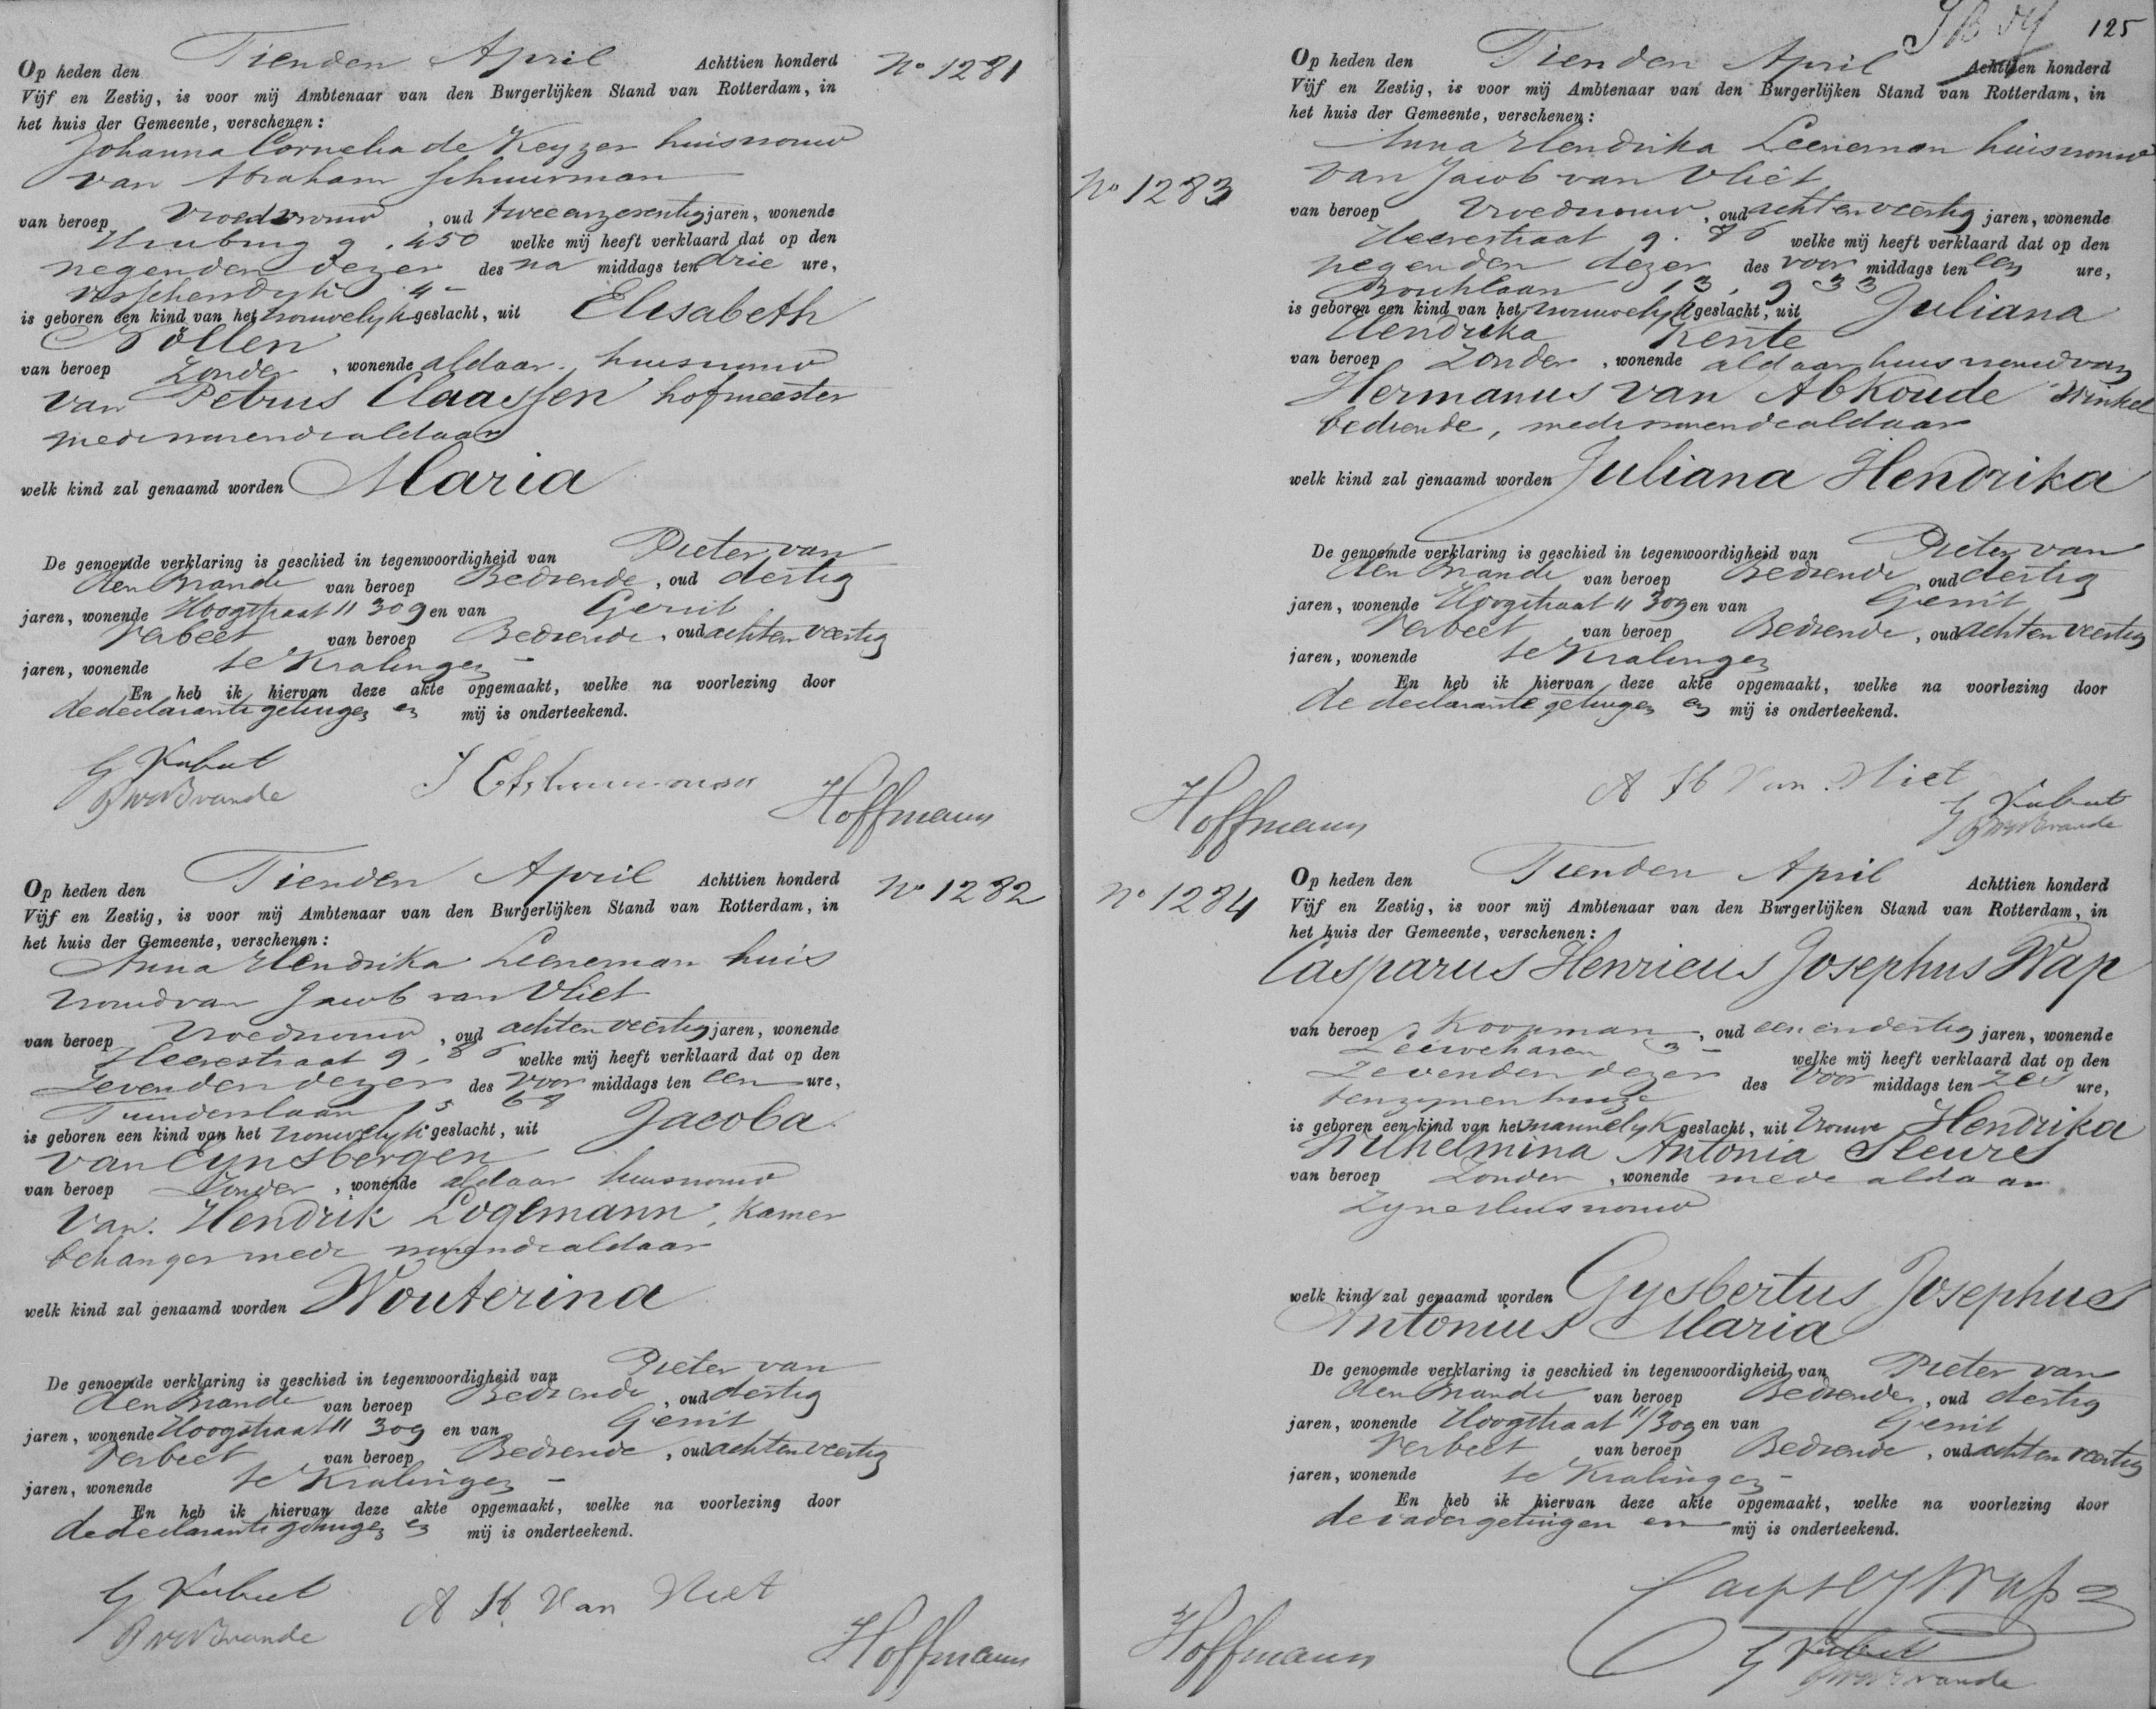 Op heden den Tienden April Achttien honderd
No 1281
Vijf en Zestig, is voor mij Ambtenaar van den Burgerlijken Stand van Rotterdam, in
het huis der Gemeente, verschenen:
Johanna Cornelia de Keyzer huisvrouw
van Abraham Schuurman
van beroep Vroedvrouw, oud tweeenzeventig jaren, wonende
9. 450 welke mij heeft verklaard dat op den
negenden dezer des na middags ten drie ure,
4
is geboren een kind van het vrouwelyk geslacht, uit Elisabeth
Nöllen
van beroep Zonder, wonende aldaar huisvrouw
van Petrus Claassen hofmeester
mede wonende aldaar
welk kind zal genaamd worden Maria
De genoemde verklaring is geschied in tegenwoordigheid van Pieter van
den Brande van beroep Bediende, oud dertig
jaren, wonende Hoogstraat 11 309 en van Gerrit
Verbeet van beroep Bediende, oud achtenveertig
jaren, wonende te Kralingen
En heb ik hiervan deze akte opgemaakt, welke na voorlezing door
de declarante getuigen en mij is onderteekend.
G Verbeet
PvdBrande
Hoffmann
Op heden den Tienden April Achttien honderd
No 1282
Vijf en Zestig, is voor mij Ambtenaar van den Burgerlijken Stand van Rotterdam, in
het huis der Gemeente, verschenen:
Anna Hendrika Leeneman huis
vrouw van Jacob van Vliet
van beroep Vroedvrouw, oud achtenveertig jaren, wonende
Heerestraat 9. 86 welke mij heeft verklaard dat op den
Zevenden dezer des Voor middags ten een ure,
Tuinderslaan 13 68
is geboren een kind van het vrouwelyk geslacht, uit Jacoba
van Eynsbergen
van beroep Zonder, wonende aldaar huisvrouw
van Hendrik Logemann, Kamer
behanger mede wonende aldaar
welk kind zal genaamd worden Wouterina
De genoemde verklaring is geschied in tegenwoordigheid van Pieter van
den Brande van beroep Bediende, oud dertig
jaren, wonende Hoogstraat 11 309 en van Gerrit
Verbeet van beroep Bediende, oud achtenveertig
jaren, wonende te Kralingen
En heb ik hiervan deze akte opgemaakt, welke na voorlezing door
de declarante getuigen en mij is onderteekend.
G Verbeet
A H Van Vliet
PvdBrande
Hoffmann
125
Op heden den Tienden April Achttien honderd
Vijf en Zestig, is voor mij Ambtenaar van den Burgerlijken Stand van Rotterdam, in
het huis der Gemeente, verschenen:
Anna Hendrika Leeneman huisvrouw
van Jacob van Vliet
No 1283
van beroep Vroedvrouw, oud achtenveertig jaren, wonende
Heerestraat 9. 86 welke mij heeft verklaard dat op den
negenden dezer des voor middags ten een ure,
13. 933
is geboren een kind van het vrouwelyk geslacht, uit Juliana
Hendrika Kente
van beroep Zonder, wonende aldaar huisvrouw van
Hermanus van Abkoude Winkel
bediende, mede wonende aldaar
welk kind zal genaamd worden Juliana Hendrika
De genoemde verklaring is geschied in tegenwoordigheid van Pieter van
den Brande van beroep Bediende, oud dertig
jaren, wonende Hoogstraat 11 309 en van Gerrit
Verbeet van beroep Bediende, oud achtenveertig
jaren, wonende te Kralingen
En heb ik hiervan deze akte opgemaakt, welke na voorlezing door
de declarante getuigen en mij is onderteekend.
A H Van Vliet
Hoffmann
G Verbeet
PvdBrande
Op heden den Tienden April Achttien honderd
No 1284
Vijf en Zestig, is voor mij Ambtenaar van den Burgerlijken Stand van Rotterdam, in
het huis der Gemeente, verschenen:
Casparus Henricus Josephus Wap
van beroep Koopman, oud eenendertig jaren, wonende
Leuvehaven 3 welke mij heeft verklaard dat op den
Zevenden dezer des Voor middags ten zes ure,
tenzynenhuize
is geboren een kind van het mannelyk geslacht, uit Vrouwe Hendrika
Wilhelmina Antonia Sleures
van beroep Zonder, wonende mede aldaar
Zyne huisvrouw
welk kind zal genaamd worden Gysbertus Josephus
Antonius Maria
De genoemde verklaring is geschied in tegenwoordigheid van Pieter van
den Brande van beroep Bediende, oud dertig
jaren, wonende Hoogstraat 11/309 en van Gerrit
Verbeet van beroep Bediende, oud achtenveertig
jaren, wonende te Kralingen
En heb ik hiervan deze akte opgemaakt, welke na voorlezing door
de vader getuigen en mij is onderteekend.
Hoffmann
G Verbeet
PvdBrande